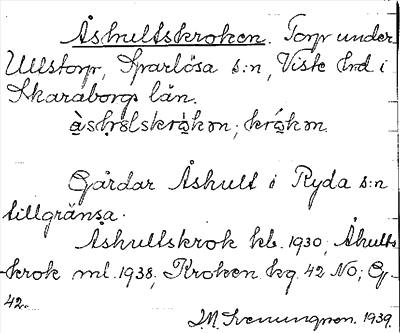 Åshultskroken. Torp under
Ullstorp, Sparlösa s:n, Viste hrd i
Skaraborgs län.
krókən.
Gårdar Åshult i Ryda s:n
tillgränsa.
Åshultskrok hb. 1930, Åhults-
krok ml. 1938, Kroken kg. 42 NO; G-
42.
1939.